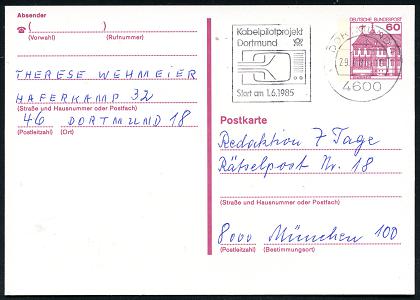 Absender
☎ ( )
(Vorwahl) (Rufnummer)
THERESE WEHMEIER
HAFERKAMP 32
(Straße und Hausnummer oder Postfach)
46 DORTMUND 18
(Postleitzahl) (Ort)
Kabelpilotprojekt
Dortmund
Start am 1.6.1985
4600
DEUTSCHE BUNDESPOST
60
Postkarte
Redaktion 7 Tage
Rätselpost Nr. 18
(Straße und Hausnummer oder Postfach)
8000 München 100
(Postleitzahl) (Bestimmungsort)